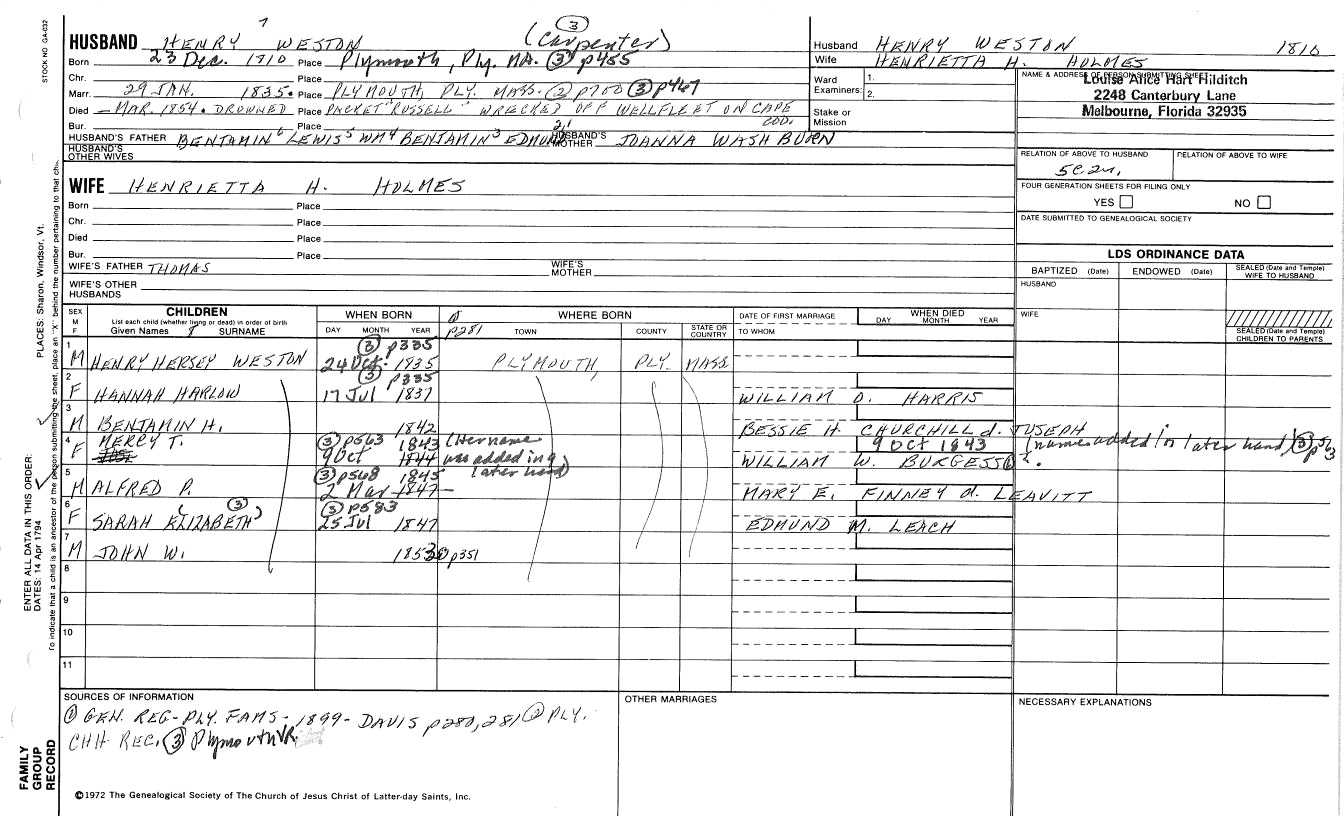 STOCK NO. GA-032
7
HUSBAND HENRY WESTON (Carpenter) ③
Born 23 Dec. 1810 Place Plymouth, Ply. MA. ③ p455
Chr. Place
Marr. 29 JAN. 1835. Place PLYMOUTH, PLY. MASS. ② p200 ③ p467
Died - MAR. 1854. DROWNED Place PACKET "RUSSELL" WRECKED OFF WELLFLEET ON CAPE COD.
Bur. Place
HUSBAND'S FATHER BENJAMIN 6 LEWIS 5 WM 4 BENJAMIN 3 EDMUND 2,1 HUSBAND'S MOTHER JOANNA WASHBURN
HUSBAND'S OTHER WIVES
Husband HENRY WESTON 1810
Wife HENRIETTA H. HOLMES
Ward Examiners: 1.
2.
Stake or Mission
NAME & ADDRESS OF PERSON SUBMITTING SHEET
Louise Alice Hart Hilditch
2248 Canterbury Lane
Melbourne, Florida 32935
RELATION OF ABOVE TO HUSBAND RELATION OF ABOVE TO WIFE
5c2r,
FOUR GENERATION SHEETS FOR FILING ONLY
YES NO
DATE SUBMITTED TO GENEALOGICAL SOCIETY
WIFE HENRIETTA H. HOLMES
Born Place
Chr. Place
Died Place
Bur. Place
WIFE'S FATHER THOMAS WIFE'S MOTHER
WIFE'S OTHER HUSBANDS
LDS ORDINANCE DATA
BAPTIZED (Date) ENDOWED (Date) SEALED (Date and Temple) WIFE TO HUSBAND
HUSBAND
WIFE
SEALED (Date and Temple) CHILDREN TO PARENTS
SEX M F CHILDREN WHEN BORN WHERE BORN DATE OF FIRST MARRIAGE WHEN DIED
List each child (whether living or dead) in order of birth
Given Names 8 SURNAME DAY MONTH YEAR ① p281 TOWN COUNTY STATE OR COUNTRY TO WHOM DAY MONTH YEAR
1 M HENRY HERSEY WESTON ③ p335 24 Oct. 1835 PLYMOUTH, PLY. MASS
2 F HANNAH HARLOW ③ p335 17 Jul 1837 WILLIAM O. HARRIS
3 M BENJAMIN H. 1842 BESSIE H. CHURCHILL d. JOSEPH
4 F MERCY T. ③ p563 1843 9 Oct 1844 (Her name was added in a later hand) 9 Oct 1843 (names added in later hand) ③ p563
WILLIAM W. BURGESS ① ?.
5 M ALFRED P. ③ p568 1845 2 Mar 1847 MARY E. FINNEY d. LEAVITT
6 F SARAH (ELIZABETH ③) ③ p583 25 Jul 1847 EDMUND M. LEACH
7 M JOHN W. 1853 ① p351
8
9
10
11
SOURCES OF INFORMATION
① GEN. REG - PLY. FAMS - 1899 - DAVIS p280, 281 ② PLY.
CHH REC. ③ Plymouth VR
OTHER MARRIAGES
NECESSARY EXPLANATIONS
©1972 The Genealogical Society of The Church of Jesus Christ of Latter-day Saints, Inc.
FAMILY GROUP RECORD
ENTER ALL DATA IN THIS ORDER:
DATES: 14 Apr 1794
PLACES: Sharon, Windsor, Vt.
To indicate that a child is an ancestor of the person submitting the sheet, place an "X" behind the number pertaining to that ch.